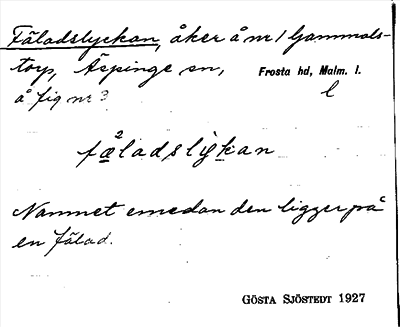 Fäladslyckan, åker å nr 1 Gammals-
torp, Äspinge sn, Frosta hd, Malm. l.
å fig nr 3 l
2
fæladslykan
Namnet emedan den ligger på
en fälad.
GÖSTA SJÖSTEDT 1927